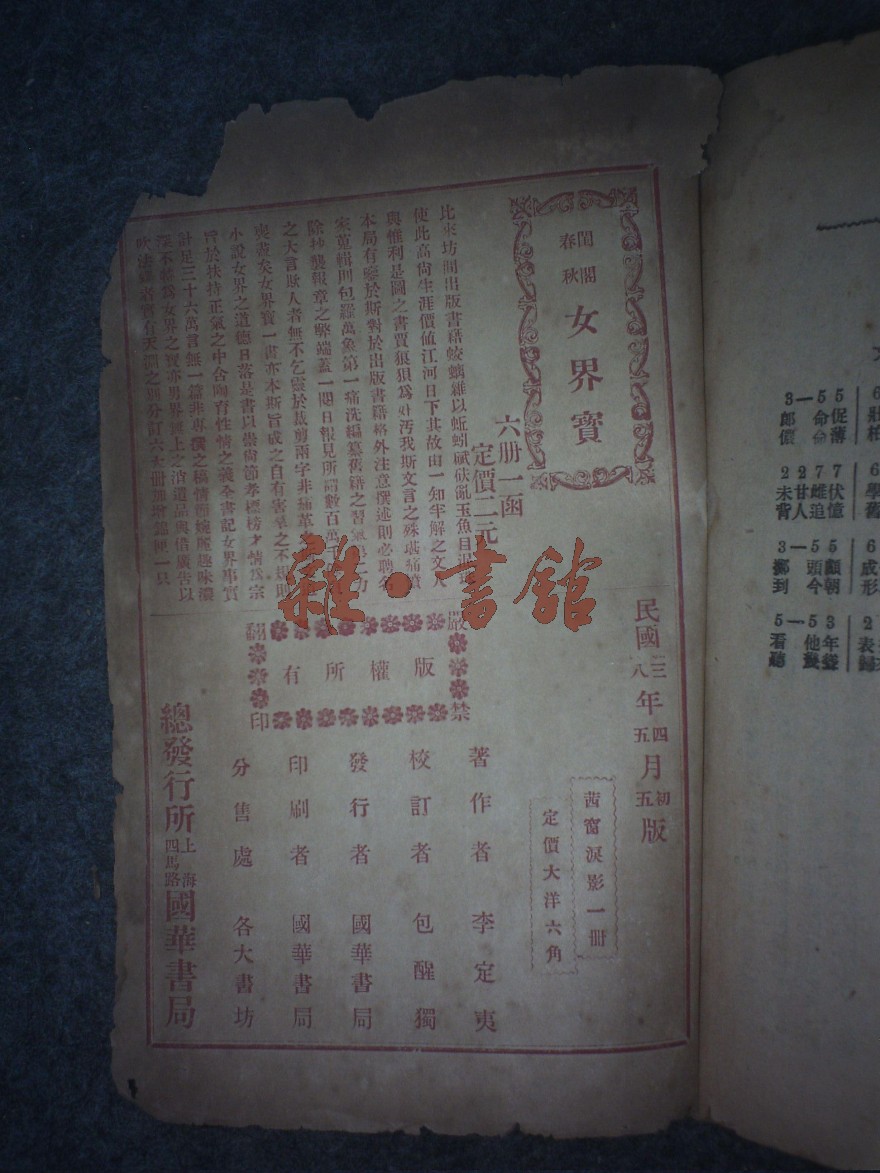 閨閣
春秋
女界寶
六册一函
定價二元
比來坊間出版書籍蛟螭雜以蚯蚓碔砆亂玉魚目混珠
使此高尚生涯價値江河日下其故由一知半解之文人
與惟利是圖之書賈狼狽爲奸污我斯文言之殊堪痛憤
本局有鑒於斯對於出版書籍格外注意撰述則必聘名
家蒐輯則包羅萬象第一痛洗編纂舊籍之習氣第二力
除抄襲報章之弊端蓋一閱日報見所謂數百萬
之大言欺人者無不乞靈於裁剪兩字非痛革
喪盡矣女界寶一書亦本斯旨成之自有書章之不規則
小說女界之道德日落是書以崇尚節孝標榜才情爲宗
旨於扶持正氣之中含陶育性情之義全書記女界事實
計足三十六萬言無一篇非專撰之稿情節婉麗趣味濃
深不特爲女界之寶亦男界無上之消遣品與借廣告以
吹法螺者實有天淵之別分訂六大册
民國三八年四五月初五版
茜窗淚影一册
定價大洋六角
嚴禁
版權所有
翻印
著作者 李定夷
校訂者 包醒獨
發行者 國華書局
印刷者 國華書局
分售處 各大書坊
總發行所 上海四馬路 國華書局
雜·書館
3—5 5
郎 命促
價 命薄
2 2 7 7
未甘雌伏
背人追憶
3—5 5
鄉 頭顱
到 今朝
5—5 3
看 他年
聽
6
學
舊
6
成
形
2
表
歸